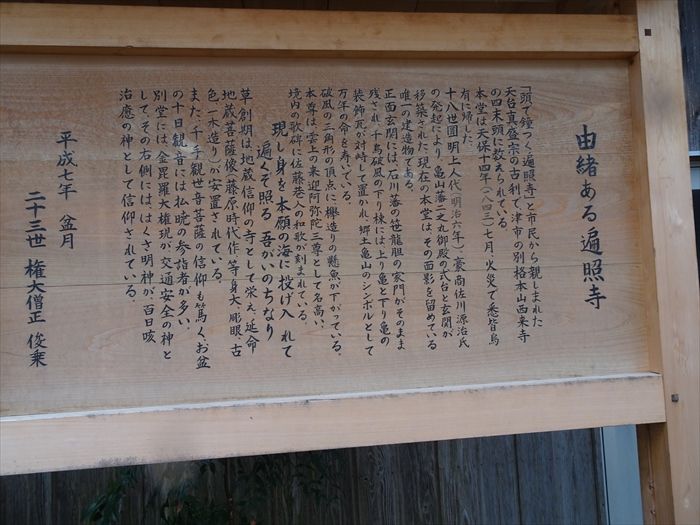 由緒ある遍照寺
「頭で鐘つく遍照寺」と市民から親しまれた
天台真盛宗の古刹で、津市の別格本山西来寺
の四末頭に数えられている。
本堂は天保十四年(一八四三)七月、火災で悉皆烏
有に帰した。
十八世圓明上人代(明治六年)、豪商佐川源治氏
の発起により、亀山藩二之丸御殿の式台と玄関が
移築された。現在の本堂は、その面影を留めている
唯一の建造物である。
正面玄関には、石川藩の笹龍胆の家門がそのまま
残され、千鳥破風の下り棟には上り亀と下り亀の
装飾瓦が対峙して置かれ、郷土亀山のシンボルとして
万年の命を寿いでいる。
破風の三角形の頂点に、欅造りの懸魚が下がっている。
本尊は雲上の来迎阿弥陀三尊として名高い。
境内の歌碑に佐藤巻への和歌が刻まれている。
現し身を本願の海に投げ入れて
遍くぞ照る吾がいのちなり
草創期は、地蔵信仰の寺として栄え、延命
地蔵菩薩像(藤原時代作、等身大、彫眼、古
色一木造り)が安置されている。
また、千手観世音菩薩の信仰も篤く、お盆
の十日観音には払暁の参詣者が多い。
別堂には、金毘羅大権現が交通安全の神と
して、その右側には、はくさ明神が、百日咳
治癒の神として信仰されている。
平成七年 盆月
二十三世 権大僧正 俊乗